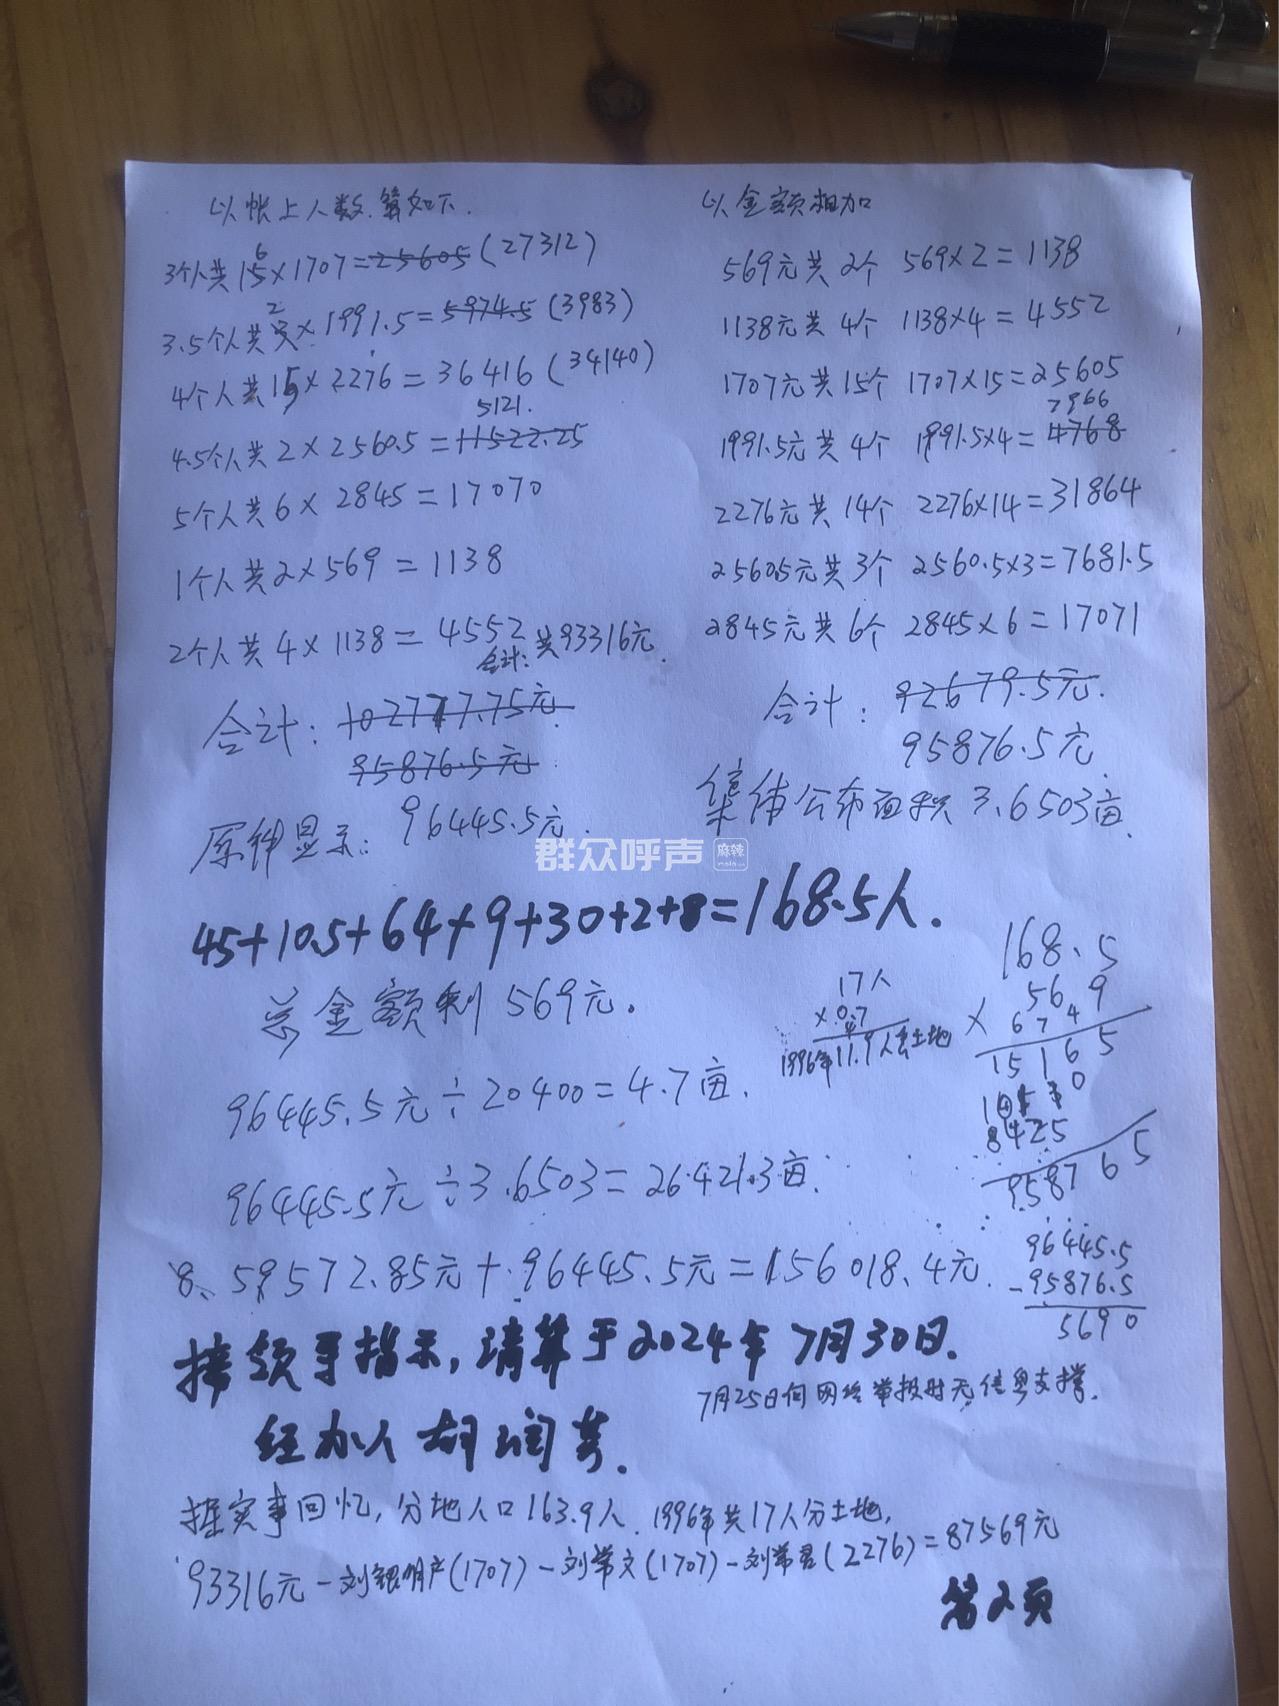 以帐上人数.算如下.
3个人共16×1707=25605(27312)
3.5个人共2×1991.5=5974.5(3983)
4个人共15×2276=36416(34140)
5121.
4.5个人共2×2560.5=11522.25
5个人共6×2845=17070
1个人共2×569=1138
2个人共4×1138=4552
合计:共93316元.
合计:102717.75元
95876.5元
显示:96445.5元.
以金额相加
569元共2个 569×2=1138
1138元共4个 1138×4=4552
1707元共15个 1707×15=25605
7966
1991.5元共4个 1991.5×4=4768
2276元共14个 2276×14=31864
25605元共3个 2560.5×3=7681.5
2845元共6个 2845×6=17071
合计:92679.5元.
95876.5元
集体公布面积3.6503亩.
群众呼声 麻辣
45+10.5+64+9+30+2+8=168.5人.
总金额剩569元.
17人
×0.7
1996年11.9人去土地
168.5
× 569
15165
8425
958765
96445.5元÷20400=4.7亩.
96445.5元÷3.6503=26421.3亩.
8、59572.85元+96445.5元=156018.4元.
96445.5
-95876.5
5690
接领导指示,请算于2024年7月30日.
7月25日向网络举报时无信号支撑.
经办人胡润
据实事回忆,分地人口163.9人.1996年共17人分土地,
93316元-刘银明户(1707)-刘常文(1707)-刘常君(2276)=87569元
第2页